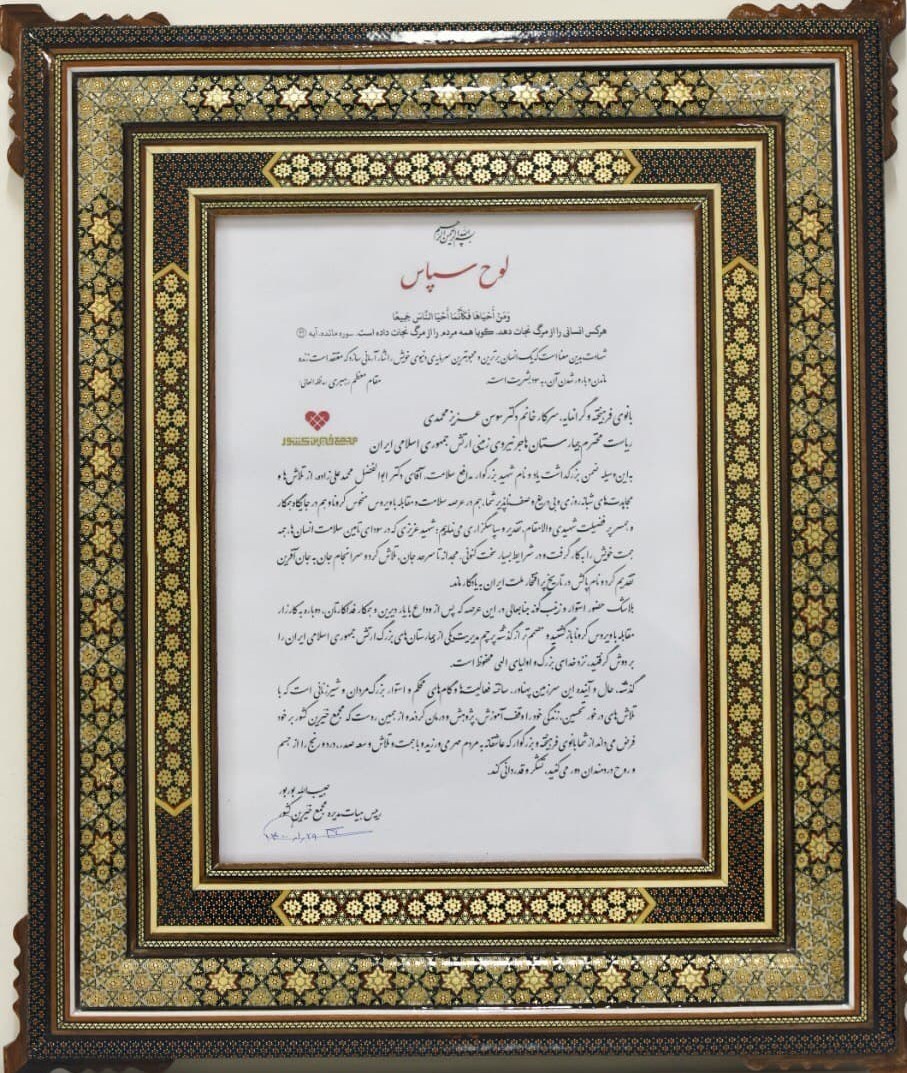 بسم الله الرحمن الرحیم
لوح سپاس
وَمَنْ أَحْیَاهَا فَکَأَنَّمَا أَحْیَا النَّاسَ جَمِیعًا
هرکس انسانی را از مرگ نجات دهد، گویا همه مردم را از مرگ نجات داده است. سوره مائده، آیه
شهادت بدین معنا است که یک انسان برترین و محبوبترین سرمایه‌ی دنیوی خویش را نثار آرمانی سازد که معتقد است زنده
ماندن و بارور شدن آن، به سود بشریت است. مقام معظم رهبری
بانوی فرهیخته و گرانمایه، سرکار خانم دکتر سوسن عزیزمحمدی
مجمع خیرین کشور
ریاست محترم بیمارستان هاجر نیروی زمینی ارتش جمهوری اسلامی ایران
به این وسیله ضمن بزرگداشت یاد و نام شهید بزرگوار مدافع سلامت، آقای دکتر ابوالفضل محمدعلی‌زاده، از تلاش‌ها و
مجاهدت‌های شبانه‌روزی و بی دریغ و وصف ناپذیر شما، هم در عرصه سلامت و مقابله با ویروس منحوس کرونا و هم در جایگاه همکار
و همسر پر فضیلت شهیدی والامقام، تقدیر و سپاسگزاری می‌نماییم؛ شهید عزیزی که در سودای تامین سلامت انسان‌ها، همه
همت خویش را به کار گرفت و در شرایط بسیار سخت کنونی، مجدانه تا سرحد جان، تلاش کرد و سرانجام جان به جان آفرین
تقدیم کرد و نام پاکش در تاریخ پر افتخار ملت ایران به یادگار ماند.
بلاشک حضور استوار و زینب گونه جنابعالی در این عرصه که پس از وداع با یار دیرین و همکار فداکارتان، دوباره به کارزار
مقابله با ویروس کرونا بازگشتید و مصمم تر از گذشته پرچم مدیریت یکی از بیمارستان‌های بزرگ ارتش جمهوری اسلامی ایران را
بر دوش گرفتید، نزد خدای بزرگ و اولیای الهی محفوظ است.
گذشته، حال و آینده این سرزمین پهناور، ساخته فعالیت‌ها و گام‌های محکم و استوار بزرگ‌مردان و شیرزنانی است که با
تلاش‌های درخور تحسین، زندگی خود را وقف آموزش، پژوهش و درمان کردند و از همین روست که مجمع خیرین کشور بر خود
فرض می‌داند از شما بانوی فرهیخته و بزرگوار که عاشقانه به مردم مهر می‌ورزید و با همت و تلاش و سعه صدر، درد و رنج را از جسم
و روح دردمندان دور می‌کنید، تشکر و قدردانی کند.
حبیب‌الله بوربور
رییس هیات مدیره مجمع خیرین کشور